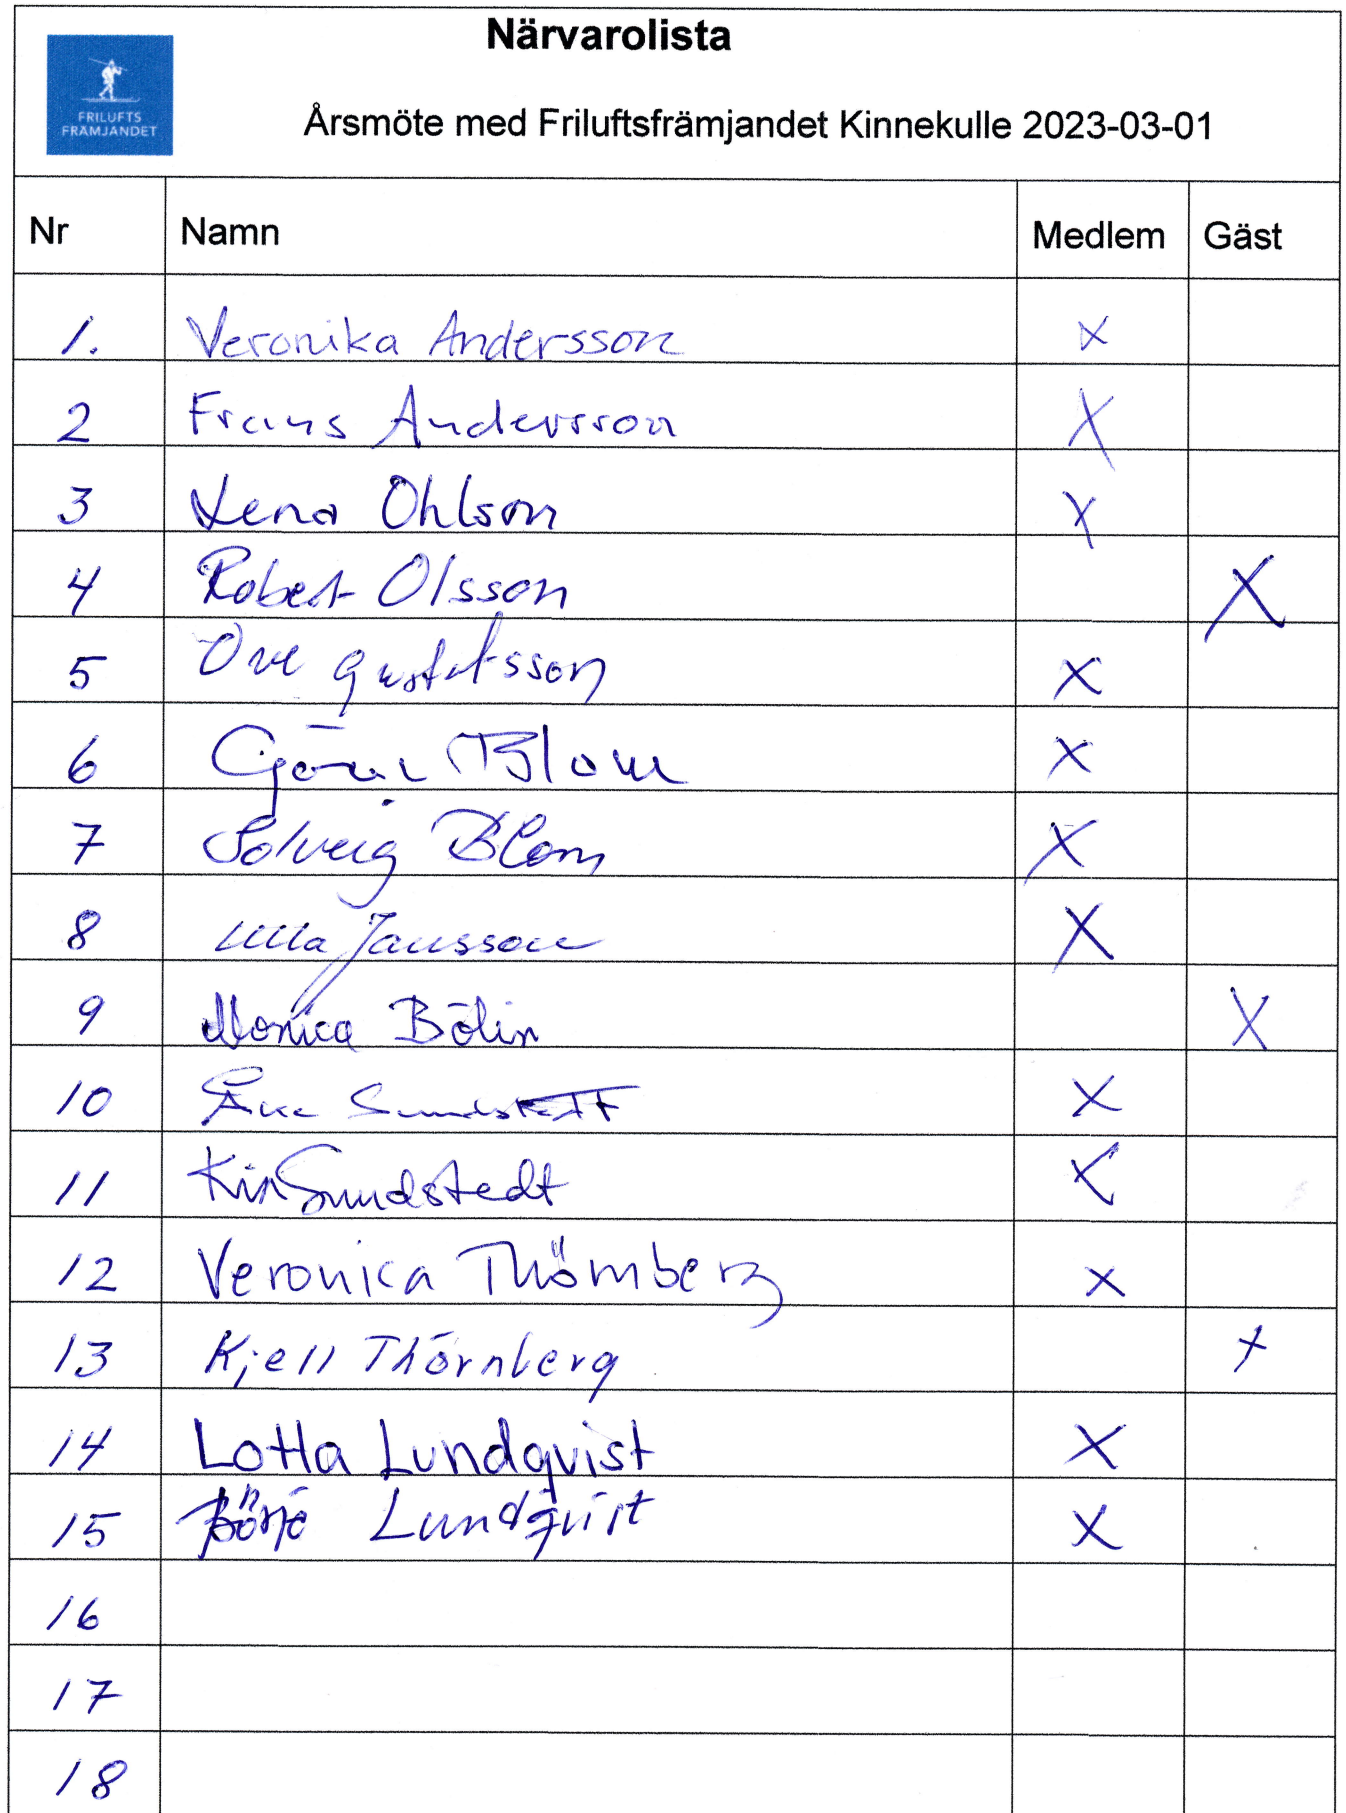 Närvarolista
FRILUFTS
FRÄMJANDET
Årsmöte med Friluftsfrämjandet Kinnekulle 2023-03-01
Nr Namn Medlem Gäst
1. Veronika Andersson X
2 Frans Andersson X
3 Lena Ohlson X
4 Robert Olsson X
5 Ove Gustafsson X
6 Göran Blom X
7 Solveig Blom X
8 Ulla Jansson X
9 Monica Bölin X
10 Åke Sundstedt X
11 Kin Sundstedt X
12 Veronica Thörnberg X
13 Kjell Thörnberg X
14 Lotta Lundqvist X
15 Börje Lundqvist X
16
17
18